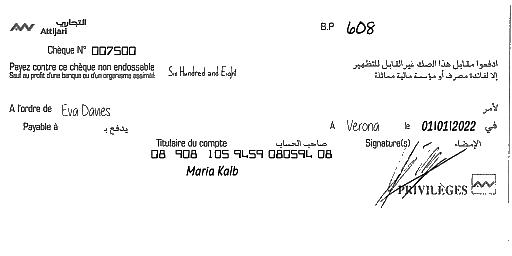 التجاري
Attijari
B.P 608
Chèque N° 007500
Payez contre ce chèque non endossable
Sauf au profit d'une banque ou d'un organisme assimilé
Six Hundred and Eight
ادفعوا مقابل هذا الصك غير القابل للتظهير
إلا لفائدة مصرف أو مؤسسة مالية مماثلة
A l'ordre de Eva Davies
لأمر
Payable à يدفع بـ
A Verona le 01/01/2022 في
Titulaire du compte صاحب الحساب
Signature(s) الإمضاء
08 908 105 9459 080594 08
Maria Kalb
PRIVILÈGES